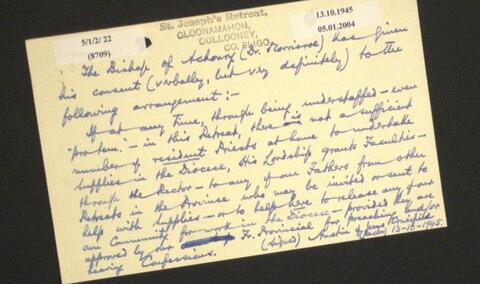 5/1/2/ 22
(8709)
St. Joseph's Retreat,
CLOONAMAHON,
COLLOONEY,
CO. SLIGO.
13.10.1945
05.01.2004
The Bishop of Achonry (Dr. Morrisroe) has given
his consent (verbally, but very definitely) to the
following arrangement :-
If at any time, through being understaffed – even
"pro tem." – in this Retreat, there is not a sufficient
number of resident Priests at home to undertake
Supplies in the Diocese, His Lordship grants Faculties –
through the Rector – to any of our Fathers from other
Retreats in the Province who may be invited or sent to
help with Supplies – or to help here to release any of our
own Community for work in the Diocese – provided they are
approved by our Fr. Provincial for Preaching and/or
hearing Confessions.
(signed) Austin
(Rector) 13-10-1945.